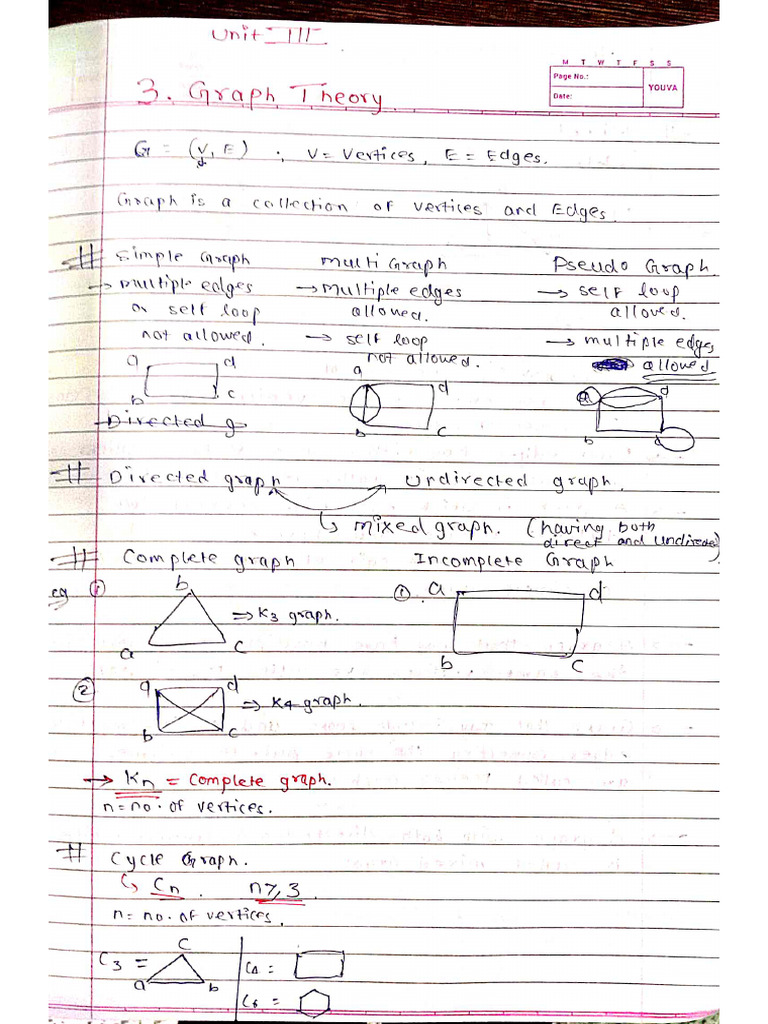 Unit III
M T W T F S S
Page No.:
Date:
YOUVA
3. Graph Theory
G = (V, E) ; V = Vertices, E = Edges.
Graph is a collection of vertices and Edges.
# Simple Graph Multi Graph Pseudo Graph.
→ multiple edges → multiple edges → self loop
or self loop allowed. allowed.
not allowed. → self loop → multiple edges
not allowed. allowed
a d a d a d
b c b c b
Directed g
# Directed graph Undirected graph.
↳ mixed graph. (having both
direct and undirec)
# Complete graph Incomplete Graph
eg ① b ① a d
⇒ K3 graph.
a c b c
② a d ⇒ K4 graph.
b c
→ Kn = Complete graph.
n = no. of vertices.
# Cycle Graph.
↳ Cn. n ≥ 3
n = no. of vertices.
C3 = a b c
C4 =